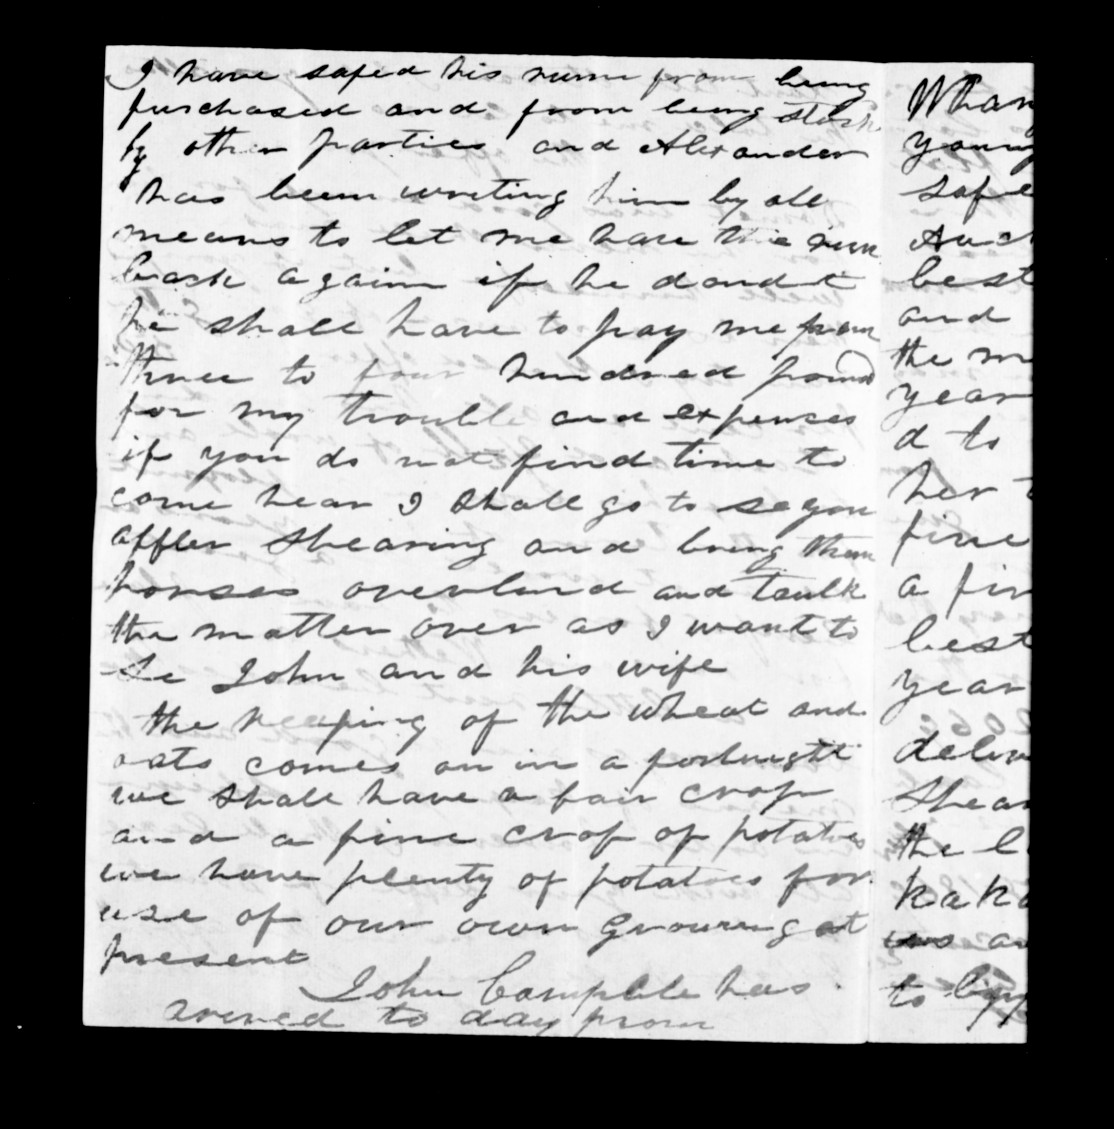 I have safed his runn from being
purchased and from being stock
by other parties and Alexander
has been writing him by all
means to let me have the runn
back again if he dond t
he shall have to pay me from
three to four hundred pound
for my trouble and expences
if you do not find time to
come hear I shall go to se you
affter Shearing and bring them
horses overland and taulk
the matter over as I want to
Se John and his wife
the reaping of the wheat and
oats comes on in a fortnight
we shall have a fair crop
and a fine crop of potatoes
we have plenty of potatoes for
use of our own growing at
present
John Campbele has
arived to day from
Whan
young
safe
best
and
the
year
d to
her
fine
a fin
best
year
deliv
Shear
the
to